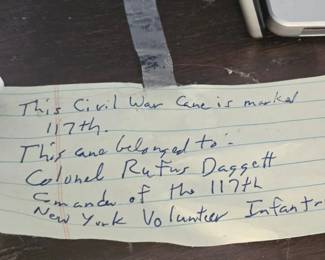 This Civil War Cane is marked
117th.
This cane belonged to:-
Colonel Rufus Daggett
Comander of the 117th
New York Volunteer Infantr